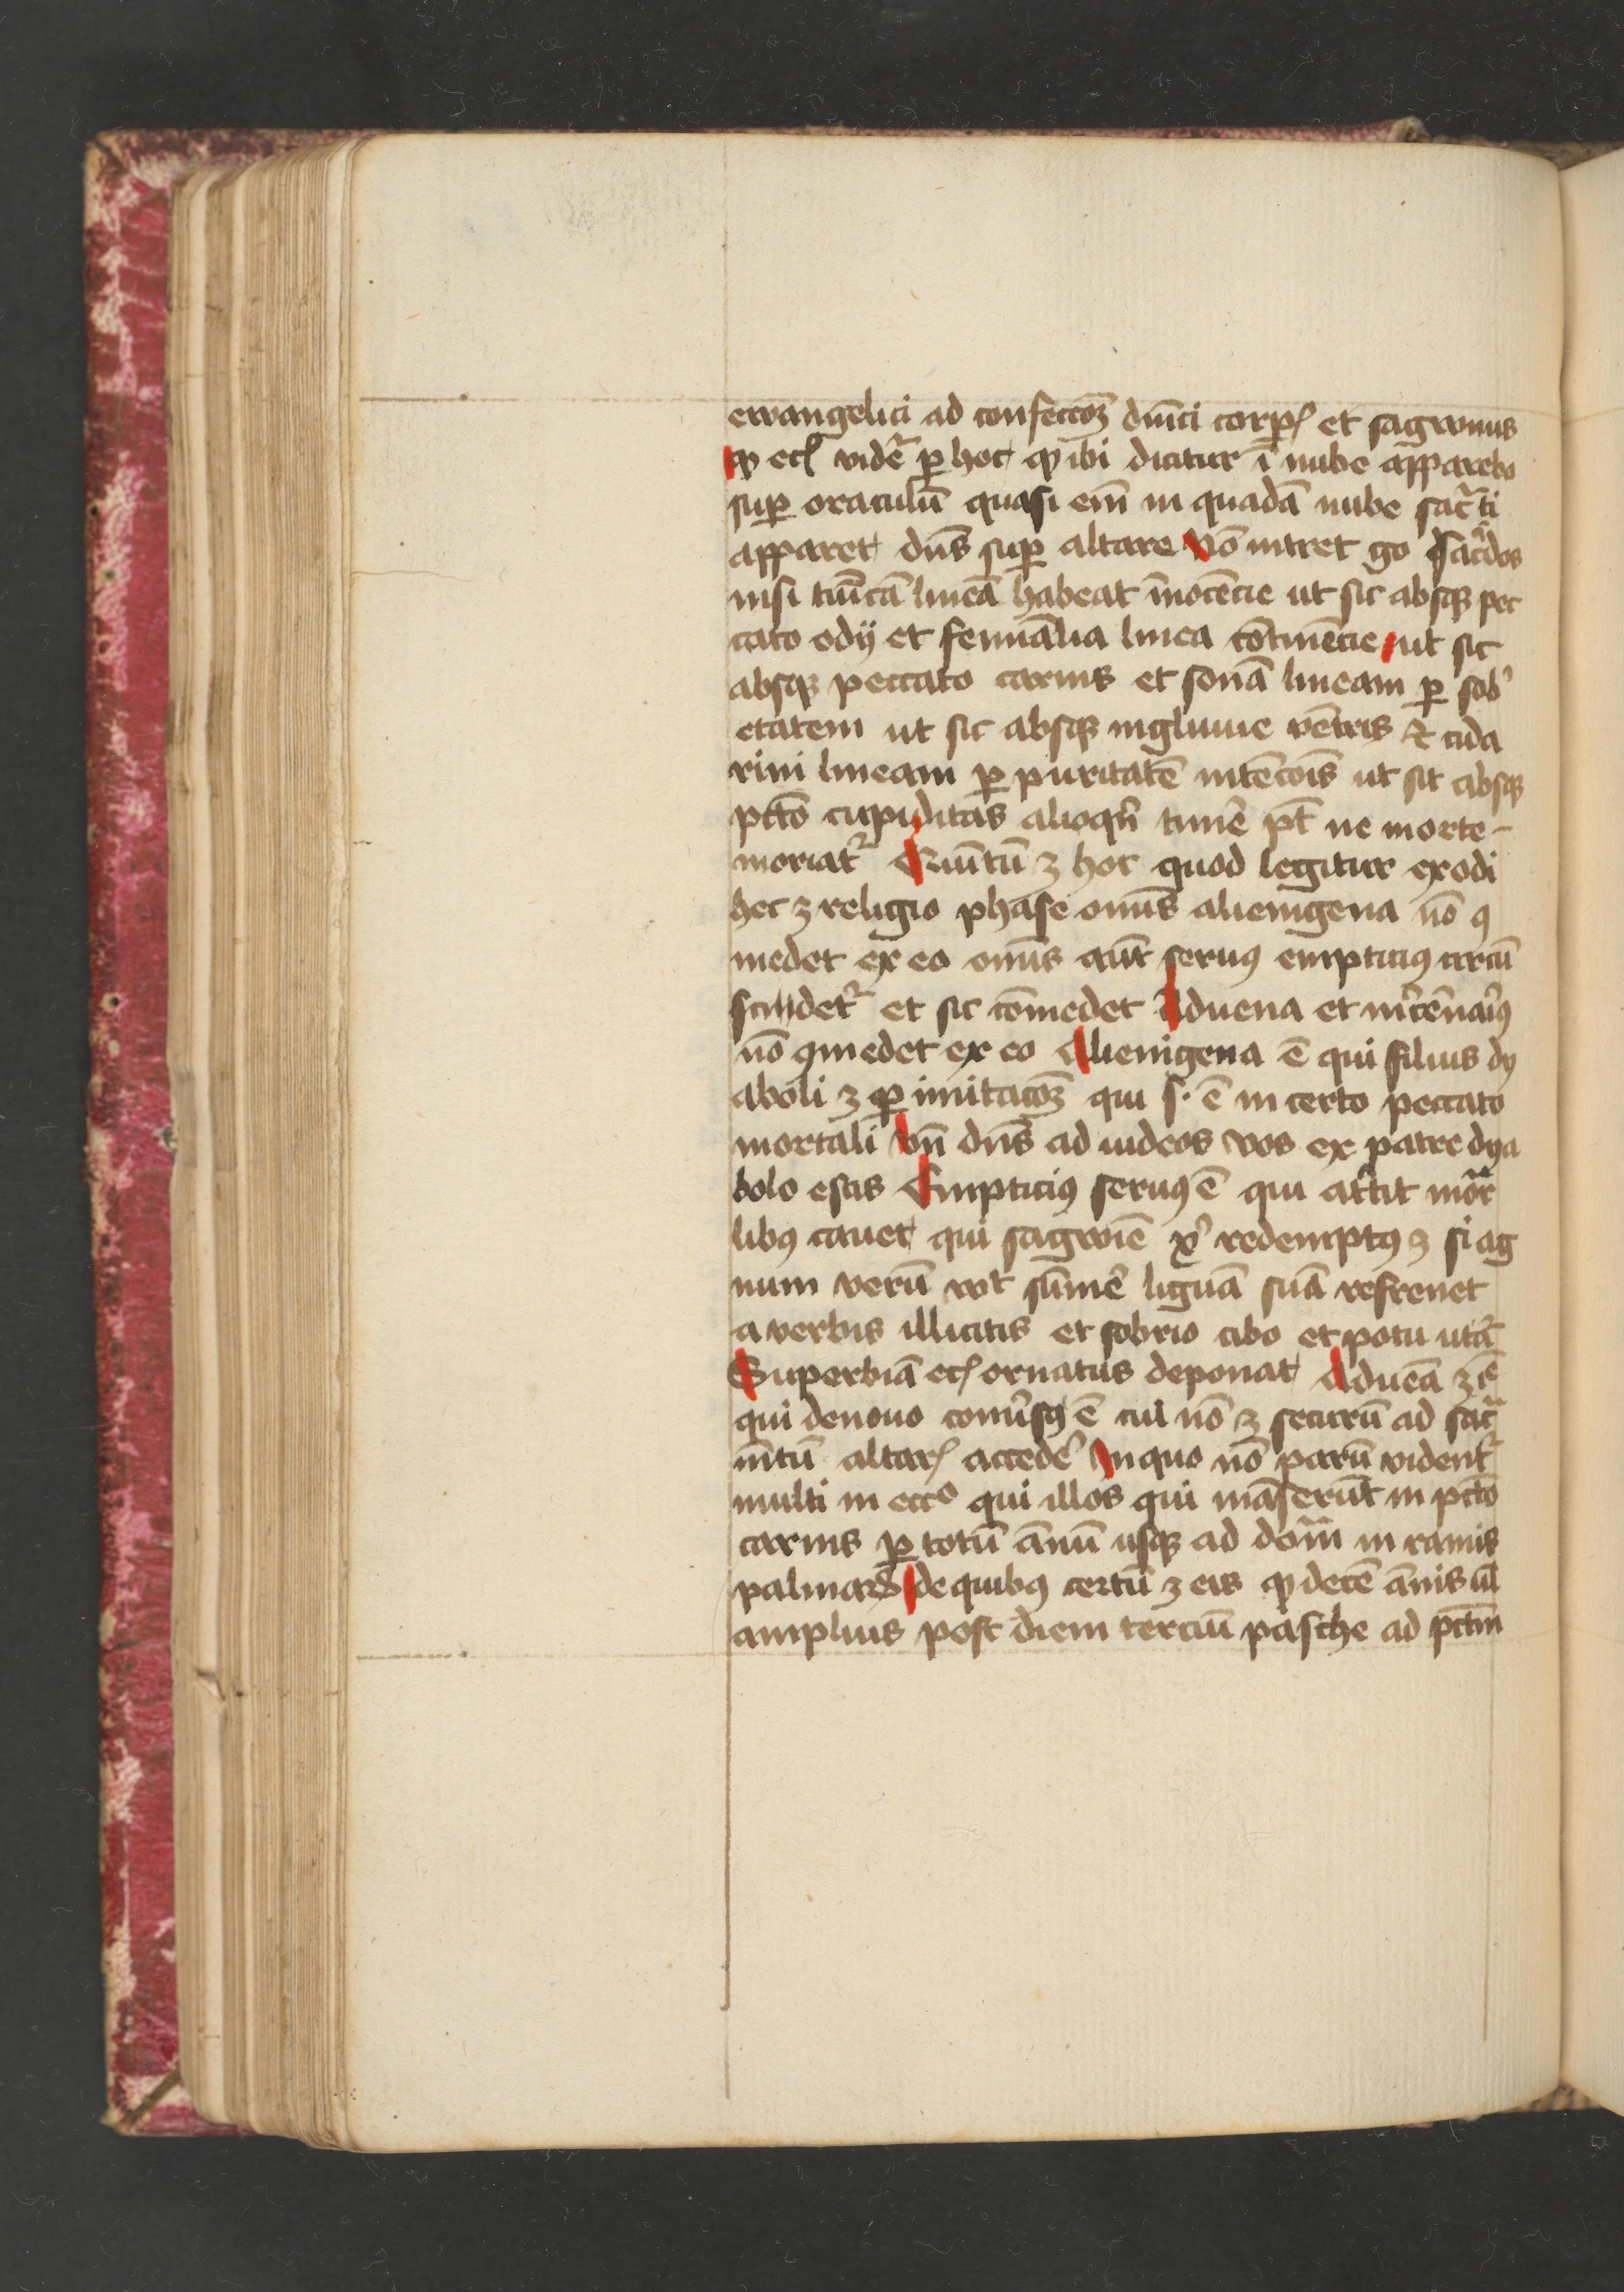 ewangelici ad confecc̄oꝫ dnīci corꝑꝭ et sagwinis
ꝙ ecꝭ vidēr ꝑ hoc ꝙ ibi dicitur ī nube apparebo
suꝑ oraculū quasi em̄ in quadā nube sac̄rti
apparet dn̄s suꝑ altare Nō intret go sac̄dos
nisi tūicā lineā habeat īnocēcie ut sit absqꝫ pec
cato odij et femīalia linea cōtinēcie ut sit
absqꝫ peccato carnis et sonā lineam ꝑ sobͥ
etatem ut sit absqꝫ ingluuie vētris Et cida
rim lineam ꝑ puritatē intēcōis ut sit absqꝫ
pctō cupiditas alioqͥn timē pt̄ ne morte-
moriatᷣ Quītū ꝫ hoc quod legitur exodi
hec ꝫ religio phase omīs alienigena nō ꝯ
medet ex eo omīs aūt seruꝰ empticiꝰ circū
scindetᷣ et sic cōmedet Aduena et mͨcēnaͥꝰ
nō ꝯmedet ex eo Alienigena ē qui filius dy
aboli ꝫ ꝑ imitacōꝫ qui s· ē in certo peccato
mortali Vn̄ dn̄s ad iudeos vos ex patre dya
bolo estis Empticiꝰ seruꝰ ē qui at͛tit mor̄
libꝰ cauet qui sagwīe xͥ redemptꝰ ꝫ si ag
num verū vlt sūmē liguā suā refrenet
a verbis illicitis et sobrio cibo et potu utāᷣ
Superbiā ecꝭ ornatus deponat Aduēa ꝫ ē
qui denouo conuͥsꝰ ē cui nō ꝫ securū ad sac̄r
m̄tū altarꝭ accedē In quo nō parū videntᷣ
multi in eccº qui illos qui māserūt in pctō
carnis ꝑ totū ānū usqꝫ ad dom̄ in ramis
palmaꝝ de quibꝰ certū ꝫ eis ꝙ decē ānis ul̄
amplius post diem terciū pasche ad pctm̄